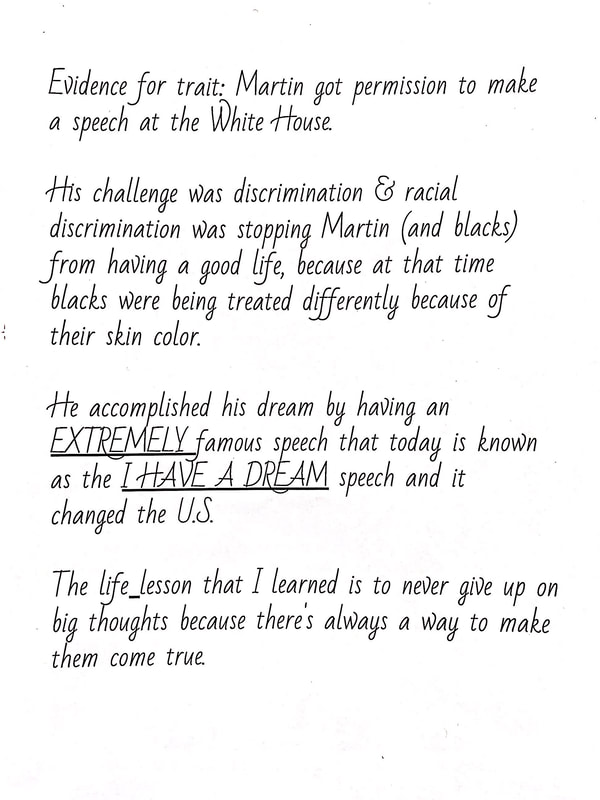 Evidence for trait: Martin got permission to make
a speech at the White House.
His challenge was discrimination & racial
discrimination was stopping Martin (and blacks)
from having a good life, because at that time
blacks were being treated differently because of
their skin color.
He accomplished his dream by having an
EXTREMELY famous speech that today is known
as the I HAVE A DREAM speech and it
changed the U.S.
The life_lesson that I learned is to never give up on
big thoughts because there's always a way to make
them come true.